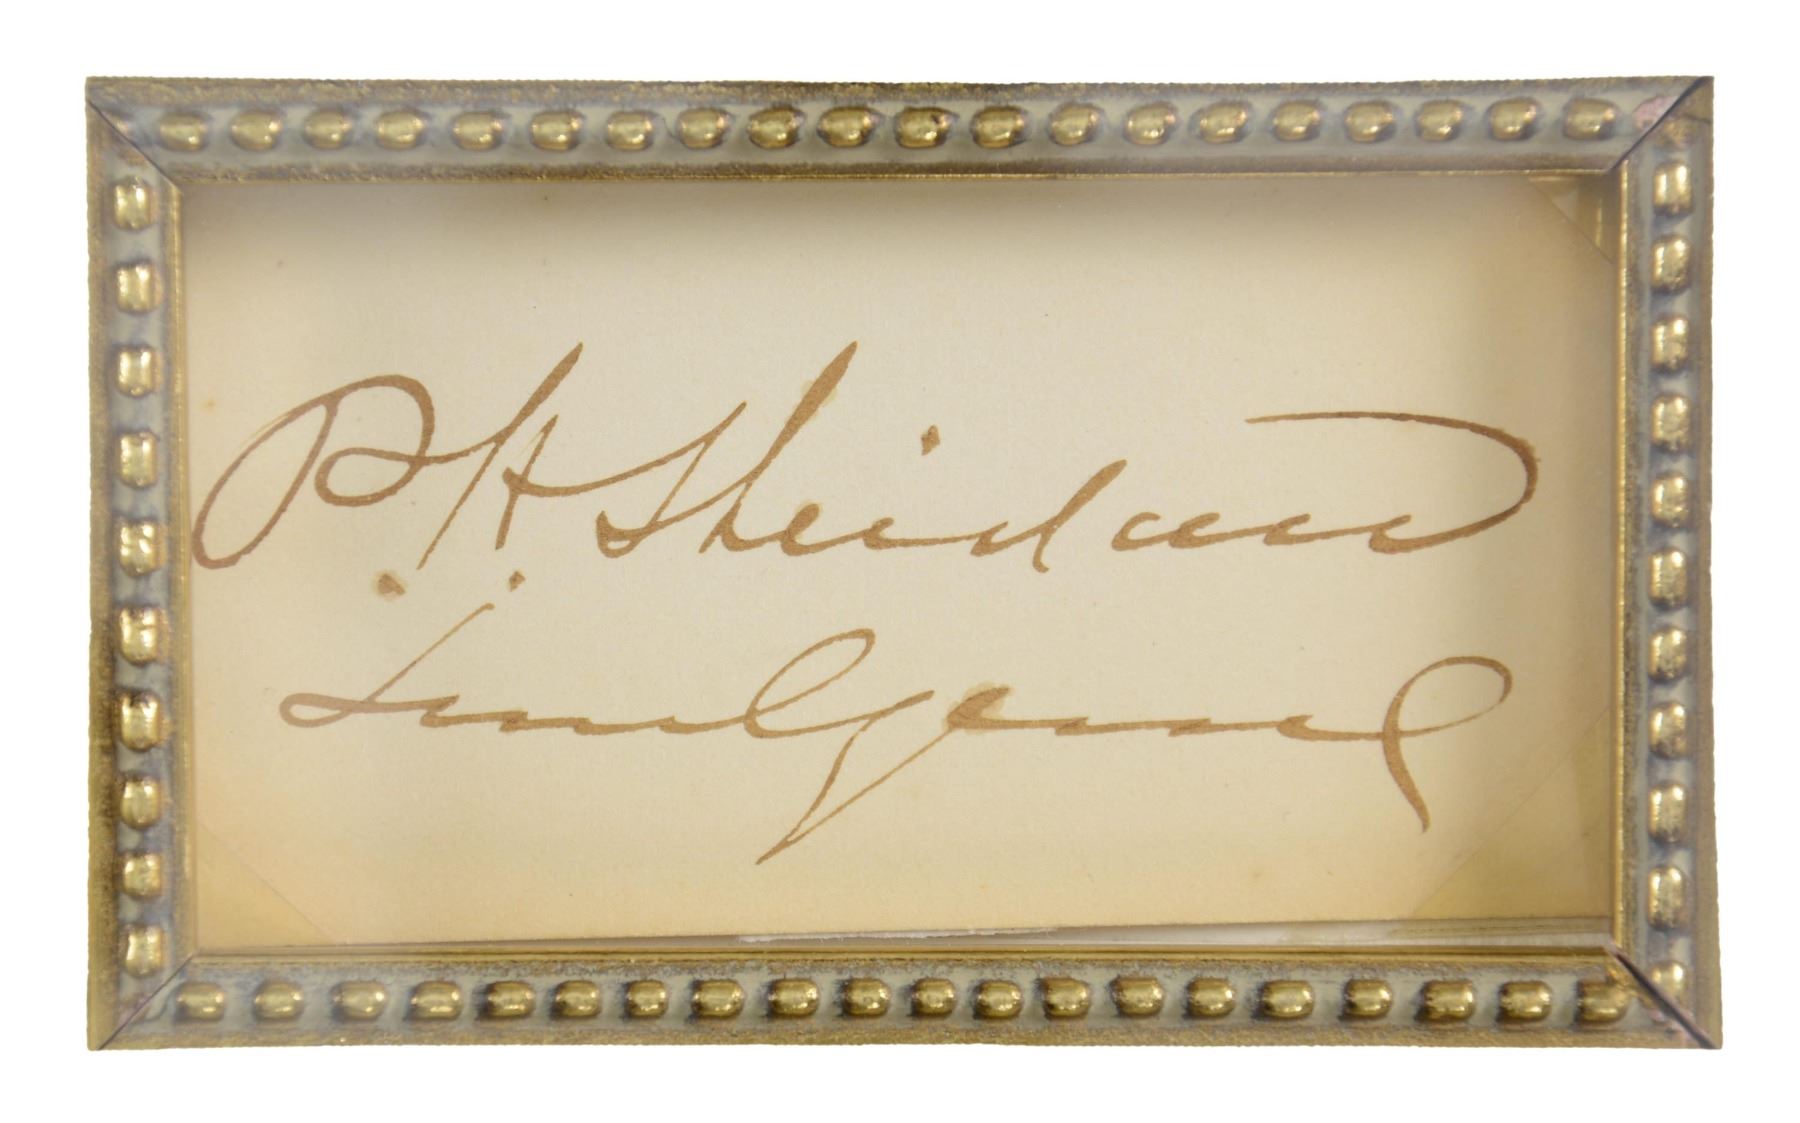 P H Sheridan
Lieut General